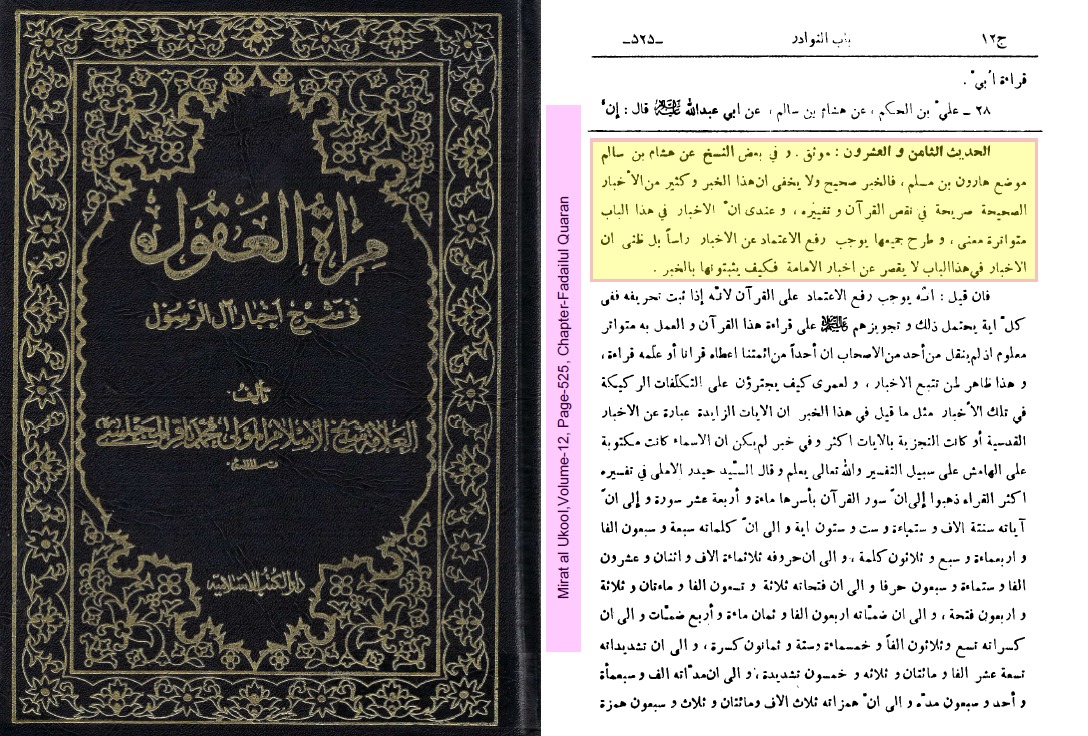 مرآة العقول
في شرح أخبار آل الرسول
تأليف
العلامة شيخ الإسلام المولى محمد باقر المجلسي
دار الكتب الإسلامية
Mirat al Ukool,Volume-12, Page-525, Chapter-Fadailul Quaran
ج١٢ باب النوادر -٥٢٥-
قراءة اُبيّ .
٢٨ ـ عليّ بن الحكم ، عن هشام بن سالم ، عن ابي عبدالله عليه السلام قال : إنّ
الحديث الثامن و العشرون : موثق . و في بعض النسخ عن هشام بن سالم
موضع هارون بن مسلم ، فالخبر صحيح ولا يخفى ان هذا الخبر و كثير من الأخبار
الصحيحة صريحة في نقص القرآن و تغييره ، و عندى انّ الاخبار في هذا الباب
متواترة معنى ، و طرح جميعها يوجب رفع الاعتماد عن الاخبار رأساً بل ظنى ان
الاخبار في هذا الباب لا يقصر عن اخبار الامامة فكيف يثبتونها بالخبر .
فان قيل : انّه يوجب رفع الاعتماد على القرآن لانّه إذا ثبت تحريفه ففى
كلّ اية يحتمل ذلك و تجويزهم عليهم السلام على قراءة هذا القرآن و العمل به متواتر
معلوم اذ لم ينقل من أحد من الاصحاب ان أحداً من ائمتنا اعطاه قرانا أو علّمه قراءة ،
و هذا ظاهر لمن تتبع الاخبار ، و لعمرى كيف يجترؤن على التكلّفات الركيكة
في تلك الأخبار مثل ما قيل في هذا الخبر ان الايات الزايدة عبارة عن الاخبار
القدسية أو كانت التجزية بالايات اكثر و في خبر لم يكن ان الاسماء كانت مكتوبة
على الهامش على سبيل التفسير والله تعالى يعلم و قال السيّد حيدر الاملى في تفسيره
اكثر القراء ذهبوا إلى انّ سور القرآن بأسرها ماءة و أربعة عشر سورة و إلى انّ
آياته ستة الاف و ستماءة و ست و ستون اية و الى انّ كلماته سبعة و سبعون الفا
و اربعماءة و سبع و ثلاثون كلمة ، و الى ان حروفه ثلاثماءة الاف و اثنان و عشرون
الفا و ستماءة و سبعون حرفا و الى ان فتحاته ثلاثة و تسعون الفا و ماءتان و ثلاثة
و اربعون فتحة ، و الى ان ضمّاته اربعون الفا و ثمان ماءة و أربع ضمّات و الى ان
كسراته تسع و ثلاثون الفاً و خمسماءة و ستة و ثمانون كسرة ، و الى ان تشديداته
تسعة عشر الفا و مائتان و ثلاثه و خمسون تشديدة ، و الى ان مدّاته الف و سبعمأة
و أحد و سبعون مدّه و الى انّ همزاته ثلاث الاف ومائتان و ثلاث و سبعون همزة